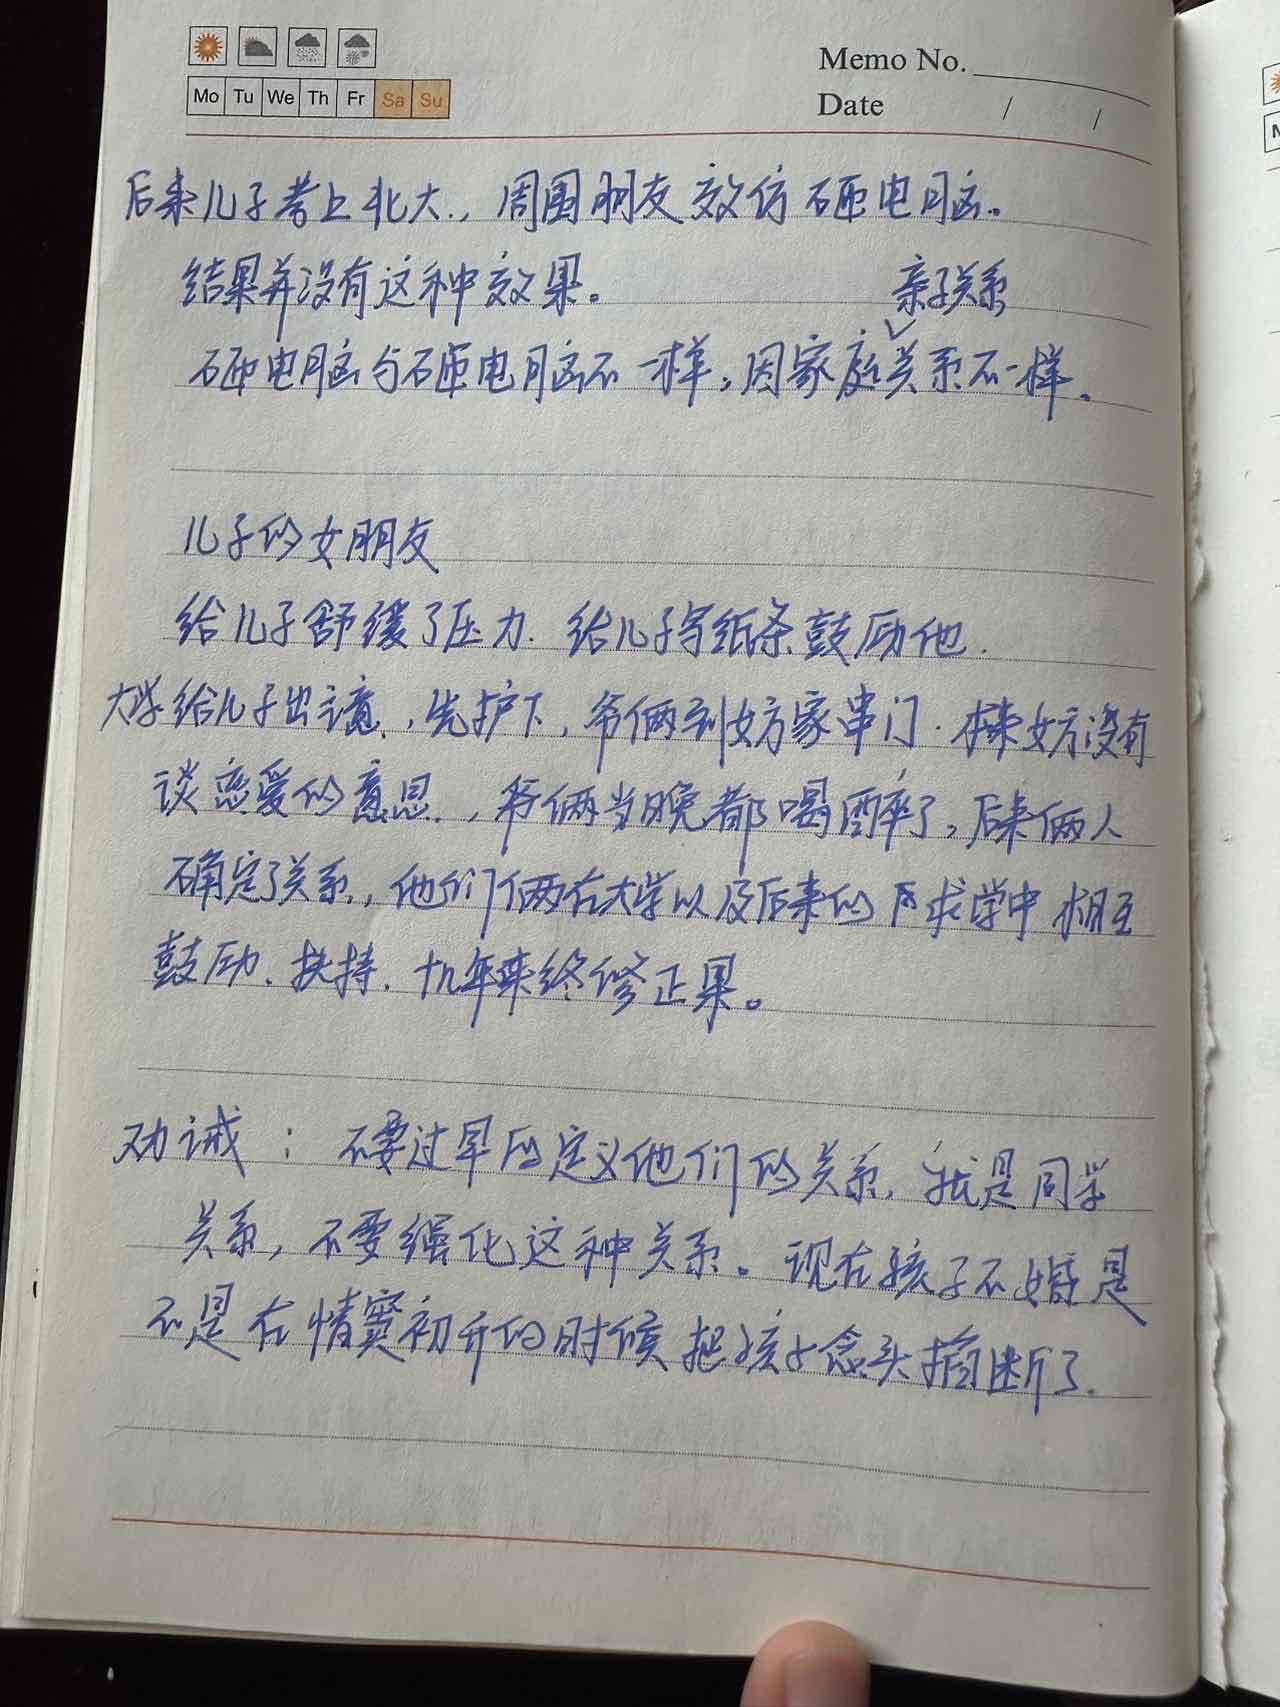 Memo No.
Mo Tu We Th Fr Sa Su
Date / /
后来儿子考上北大.，周围朋友效仿砸电脑。
结果并没有这种效果。
亲子关系
砸电脑与砸电脑不一样，因家庭关系不一样。
儿子的女朋友
给儿子舒缓了压力. 给儿子写纸条鼓励他.
大学给儿子出主意.，先护下，爷俩到女方家串门. 本来女方没有
谈恋爱的意思.，爷俩当晚都喝醉了，后来俩人
确定了关系，他们俩在大学以及后来的求学中相互
鼓励. 扶持. 十九年来终修正果。
劝诫：不要过早的定义他们的关系，就是同学
关系，不要强化这种关系。现在孩子不婚是
不是在情窦初开的时候把孩子念头掐断了.